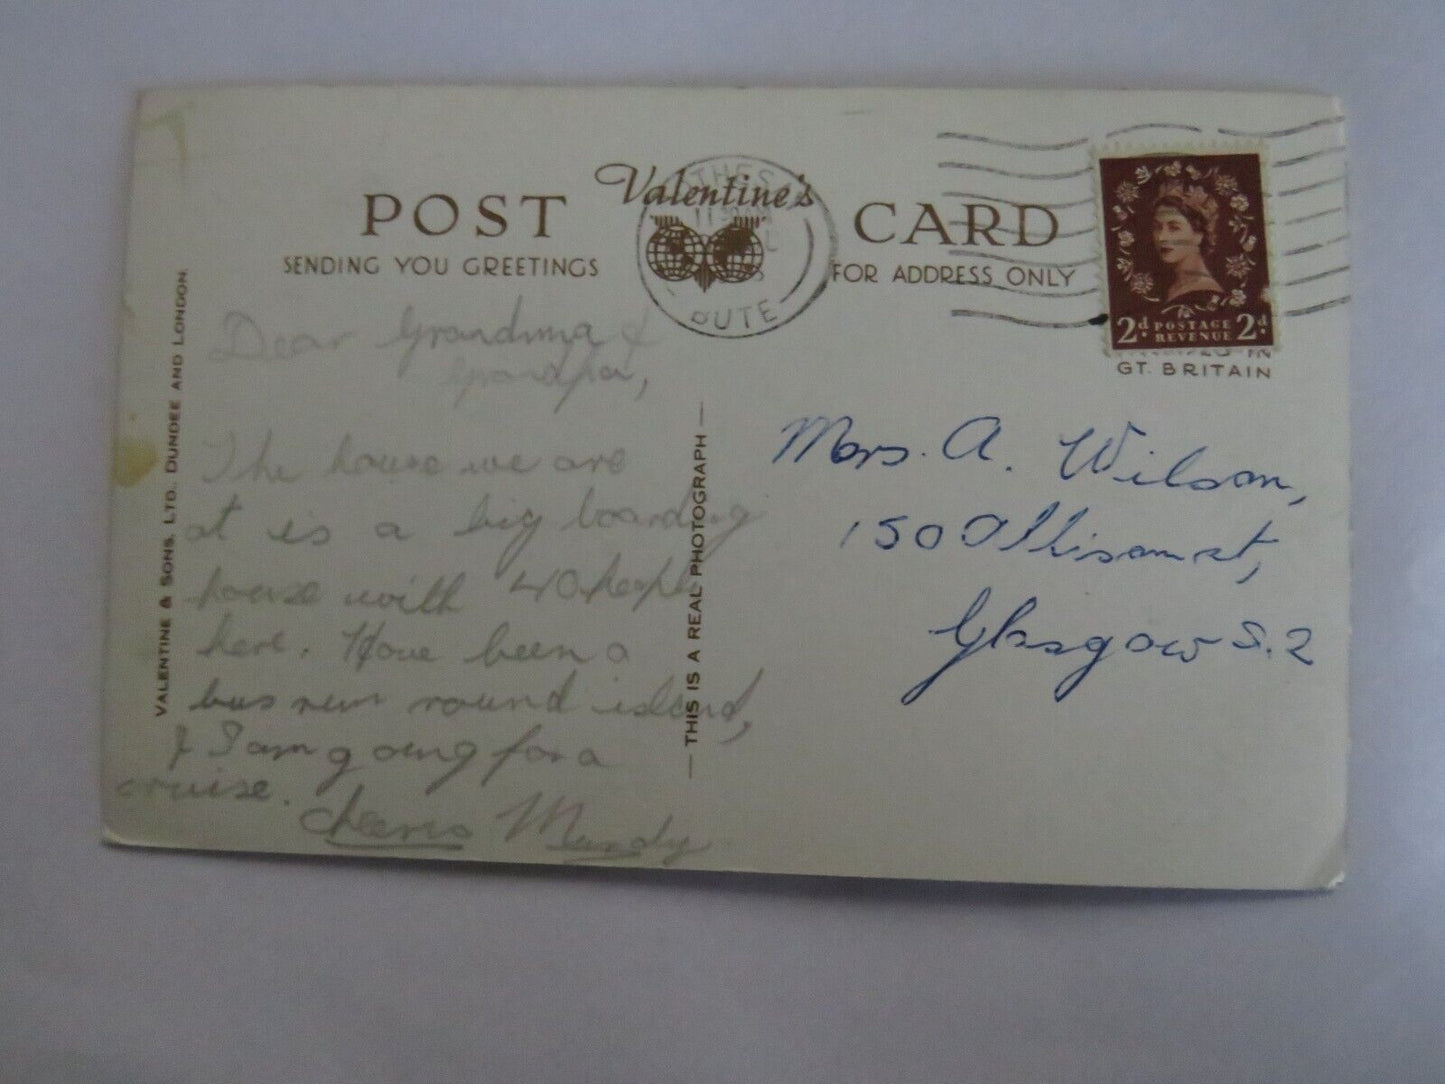 POST Valentine's CARD
SENDING YOU GREETINGS
FOR ADDRESS ONLY
BUTE
2d POSTAGE REVENUE 2d
IN
GT. BRITAIN
VALENTINE & SONS, LTD. DUNDEE AND LONDON.
Dear Grandma &
Grandpa,
The house we are
at is a big boarding
house with 40 people
here. Have been a
bus run round island,
& I am going for a
cruise.
Cheerio Mandy
— THIS IS A REAL PHOTOGRAPH —
Mrs. A. Wilson,
150 Allison st,
Glasgow S.2